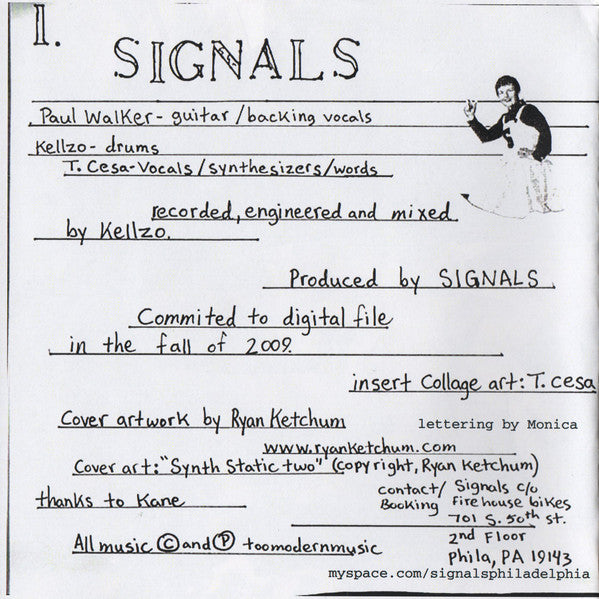 I.
SIGNALS
Paul Walker - guitar/backing vocals
Kellzo - drums
T. Cesa-Vocals/synthesizers/words
recorded, engineered and mixed
by Kellzo.
Produced by SIGNALS.
Commited to digital file
in the fall of 2009.
insert Collage art: T. Cesa
Cover artwork by Ryan Ketchum
lettering by Monica
www.ryanketchum.com
Cover art: "Synth Static two" (copyright, Ryan Ketchum)
thanks to Kane
contact/ Signals c/o
Booking firehouse bikes
701 S. 50th st.
2nd Floor
Phila, PA 19143
All music © and ℗ toomodernmusic
myspace.com/signalsphiladelphia